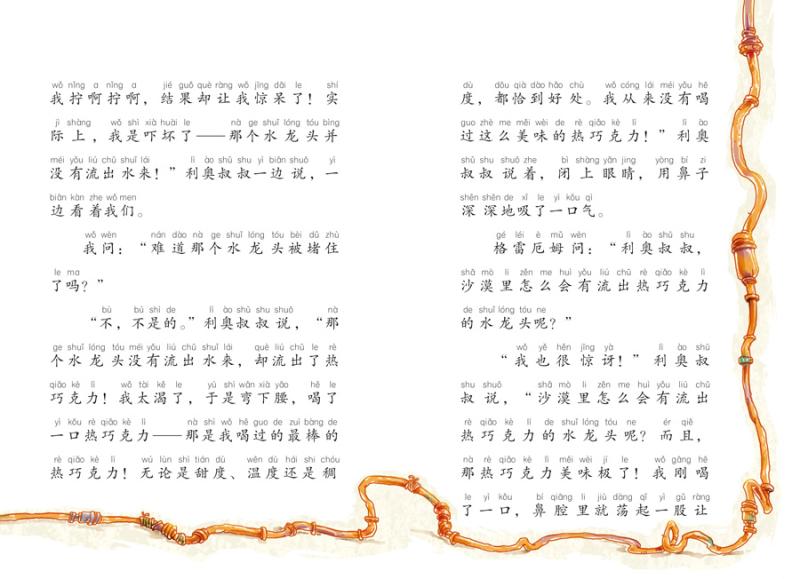 wǒ nǐng a nǐng a jié guǒ què ràng wǒ jīng dāi le shí
我拧啊拧啊，结果却让我惊呆了！实
jì shàng wǒ shì xià huài le nà ge shuǐ lóng tóu bìng
际上，我是吓坏了——那个水龙头并
méi yǒu liú chū shuǐ lái lì ào shū shu yì biān shuō yì
没有流出水来！”利奥叔叔一边说，一
biān kàn zhe wǒ men
边看着我们。
wǒ wèn nán dào nà ge shuǐ lóng tóu bèi dǔ zhù
我问：“难道那个水龙头被堵住
le ma
了吗？”
bù bú shì de lì ào shū shu shuō nà
“不，不是的。”利奥叔叔说，“那
ge shuǐ lóng tóu méi yǒu liú chū shuǐ lái què liú chū le rè
个水龙头没有流出水来，却流出了热
qiǎo kè lì wǒ tài kě le yú shì wān xià yāo hē le
巧克力！我太渴了，于是弯下腰，喝了
yì kǒu rè qiǎo kè lì nà shì wǒ hē guo de zuì bàng de
一口热巧克力——那是我喝过的最棒的
rè qiǎo kè lì wú lùn shì tián dù wēn dù hái shi chóu
热巧克力！无论是甜度、温度还是稠
dù dōu qià dào hǎo chù wǒ cóng lái méi yǒu hē
度，都恰到好处。我从来没有喝
guo zhè me měi wèi de rè qiǎo kè lì lì ào
过这么美味的热巧克力！”利奥
shū shu shuō zhe bì shàng yǎn jing yòng bí zi
叔叔说着，闭上眼睛，用鼻子
shēn shēn de xī le yì kǒu qì
深深地吸了一口气。
gé léi è mǔ wèn lì ào shū shu
格雷厄姆问：“利奥叔叔，
shā mò li zěn me huì yǒu liú chū rè qiǎo kè lì
沙漠里怎么会有流出热巧克力
de shuǐ lóng tóu ne
的水龙头呢？”
wǒ yě hěn jīng yà lì ào shū
“我也很惊讶！”利奥叔
shu shuō shā mò li zěn me huì yǒu liú chū
叔说，“沙漠里怎么会有流出
rè qiǎo kè lì de shuǐ lóng tóu ne ér qiě
热巧克力的水龙头呢？而且，
nà rè qiǎo kè lì měi wèi jí le wǒ gāng hē
那热巧克力美味极了！我刚喝
le yì kǒu bí qiāng li jiù dàng qǐ yì gǔ ràng
了一口，鼻腔里就荡起一股让